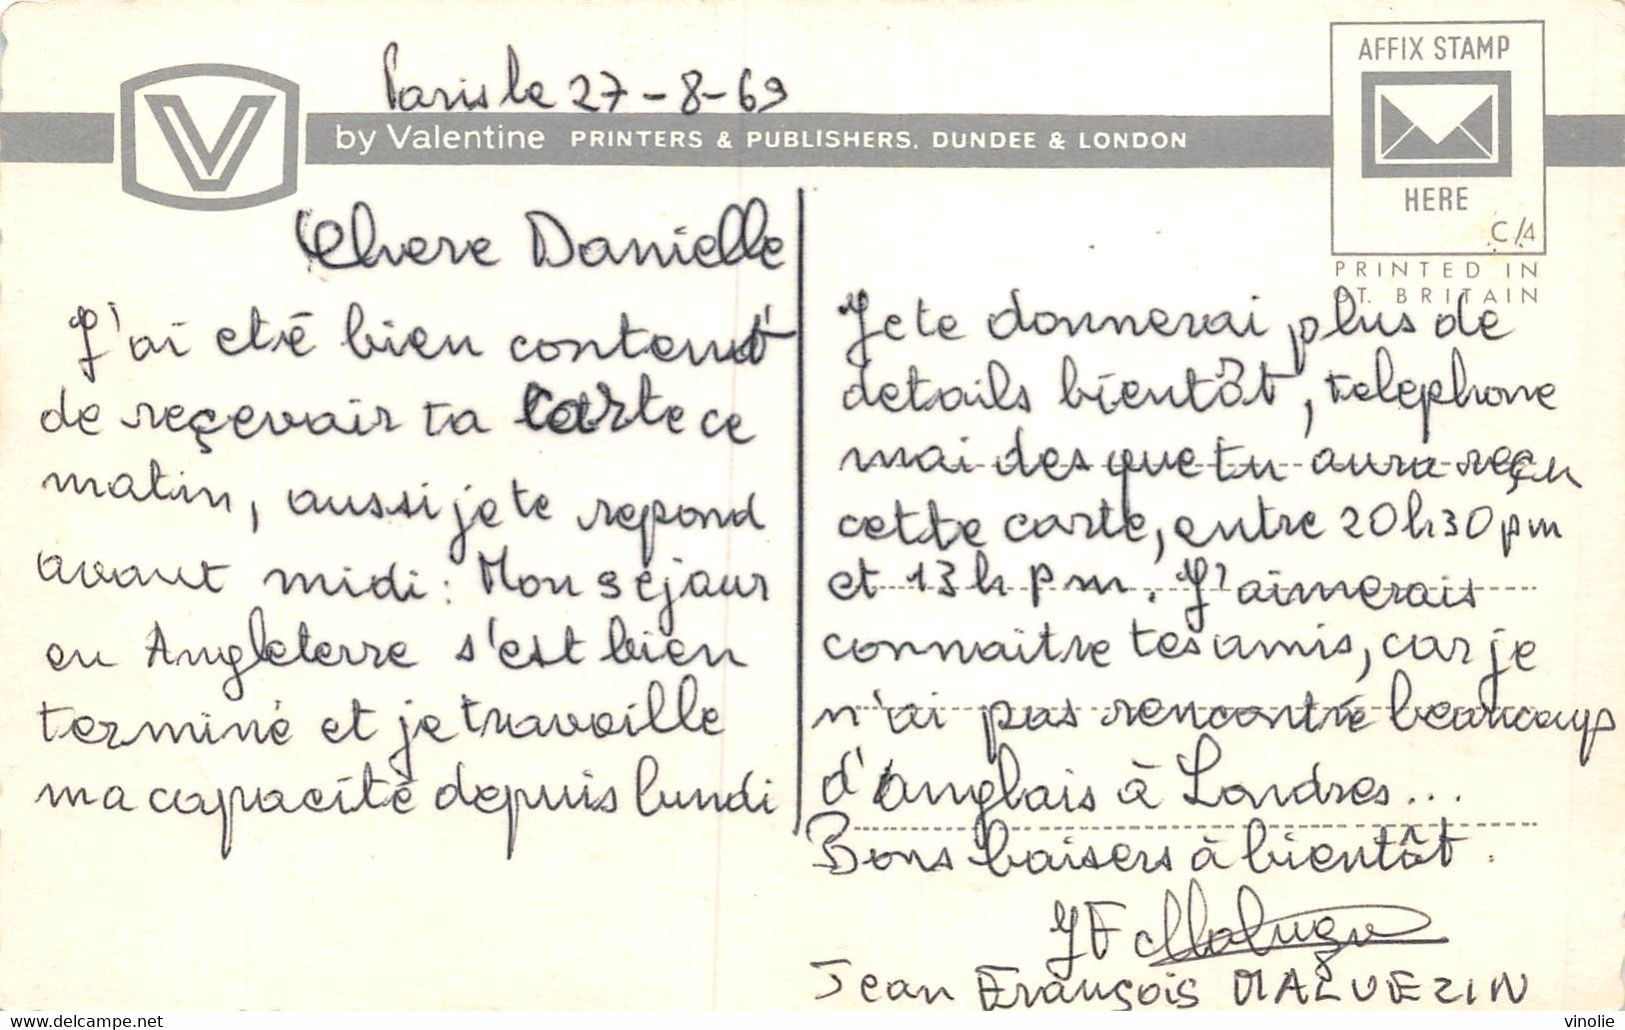 Paris le 27-8-69
V
by Valentine PRINTERS & PUBLISHERS, DUNDEE & LONDON
AFFIX STAMP
HERE
C/4
PRINTED IN
GT. BRITAIN
Chere Danielle
J'ai eté bien content
de reçevoir ta carte ce
matin, aussi je te repond
avant midi: Mon séjour
en Angleterre s'est bien
terminé et je travaille
ma capacité depuis lundi
Je te donnerai plus de
details bientôt, telephone
moi des que tu aura reçu
cette carte, entre 20h30 pm
et 13h pm. J'aimerais
connaitre tes amis, car je
n'ai pas rencontré beaucoup
d'Anglais à Londres...
Bons baisers à bientôt.
JF Malvezin
Jean François MALVEZIN
https://www.delcampe.net
vinolie